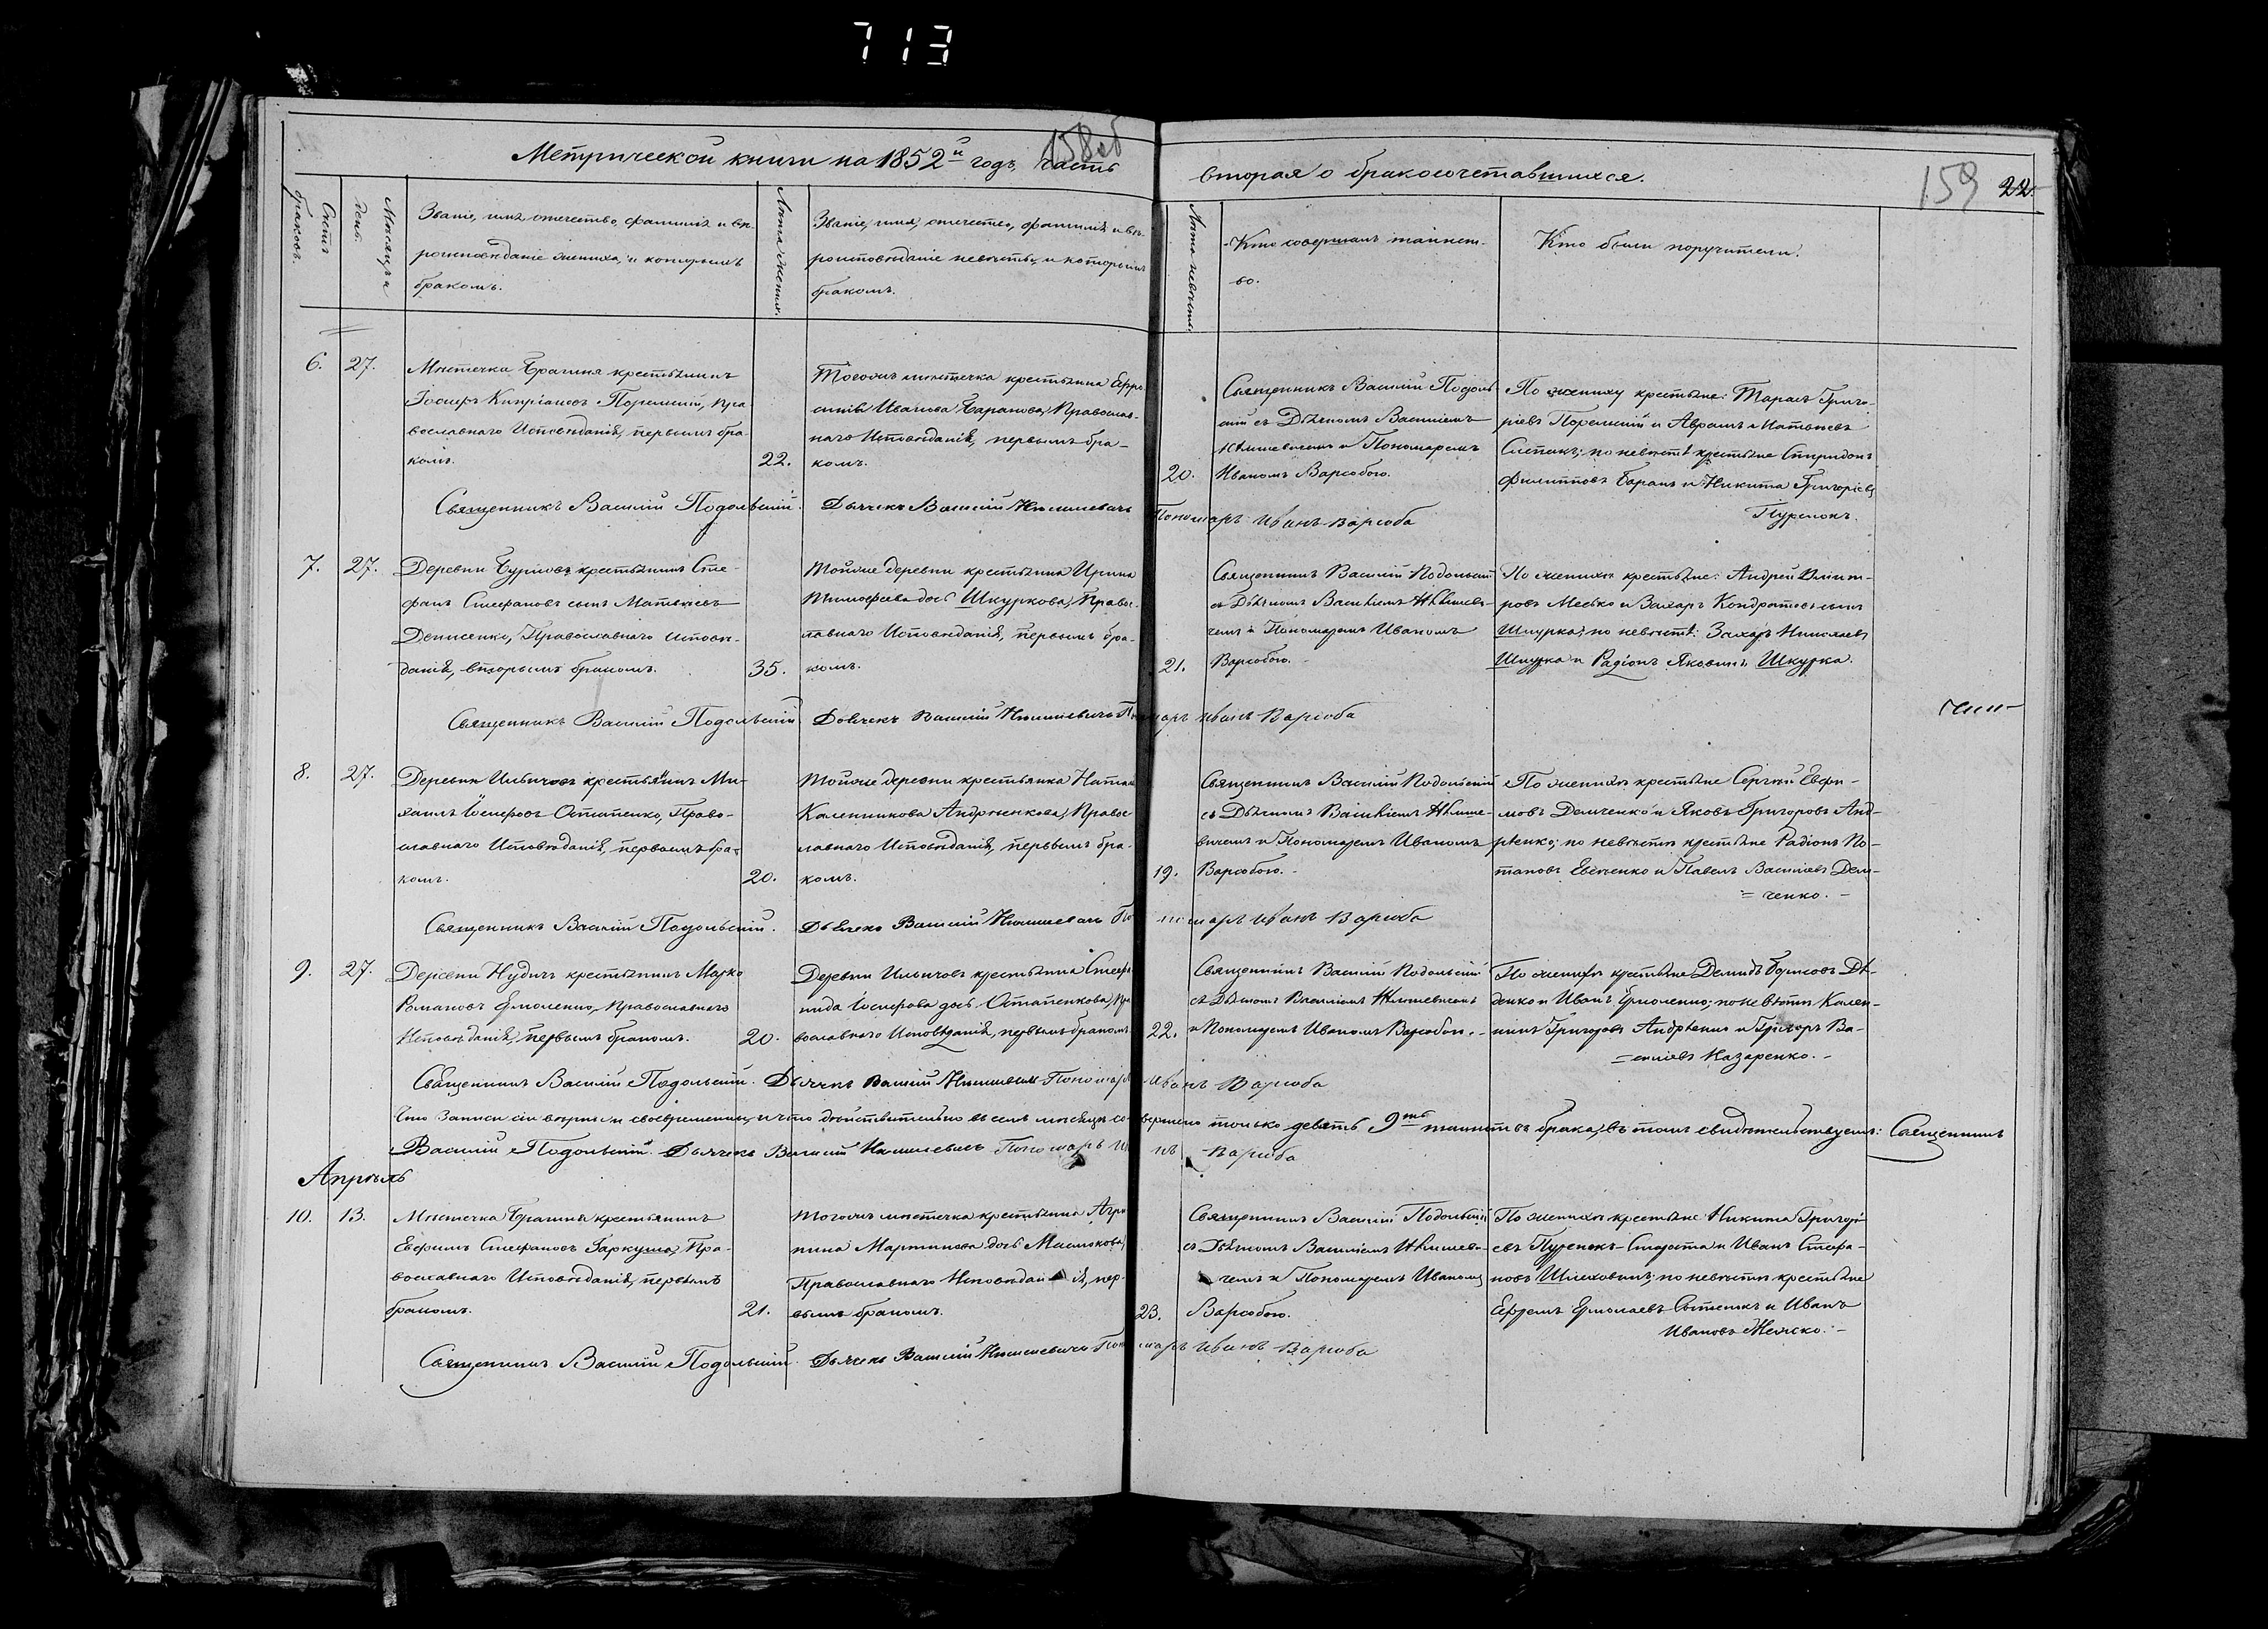 713
Метрической книги на 1852й годъ, часть
158об
вторая о бракосочетавшихся.
159 22.
Счетъ браковъ.
Мѣсяцъ и день.
Званіе, имя, отечество, фамилія и вѣ-
роисповѣданіе жениха, и которымъ
бракомъ.
Лѣта жениха.
Званіе, имя, отечество, фамилія и вѣ-
роисповѣданіе невѣсты, и которымъ
бракомъ.
Лѣта невѣсты.
Кто совершалъ таинст-
во.
Кто были поручители.
6. 27.
Мѣстечка Брагиня крестьянинъ
Іосифъ Кипріановъ Поремскій, Пра
вославнаго Исповѣданія, первымъ бра-
комъ. 22.
Тогожъ мѣстечка крестьянка Евро
синія Иванова Баранова, Православ-
наго Исповѣданія, первымъ бра-
комъ. 20.
Священникъ Василій Подоль
скій съ Дьячкомъ Василіемъ
и Пономаремъ
Иваномъ Варсобою.
По жениху крестьяне: Тарасъ Григо-
ріевъ Поремскій и Аврамъ Матвѣевъ
по невѣстѣ крестьяне Спиридонъ
Филипповъ Баранъ и Никита Григоріевъ
Пуренокъ.
Священникъ Василій Подольскій. Дьячекъ Василій Пономарь Иванъ Варсоба
7. 27.
Деревни крестьянинъ Сте-
фанъ Стефановъ сынъ Матвѣевъ
Денисенко, Православнаго исповѣ-
данія, вторымъ бракомъ. 35.
Тойже деревни крестьянка Ирина
Тимофеева дочь Шкуркова, Право-
славнаго Исповѣданія, первымъ бра-
комъ. 21.
Священникъ Василій Подольскій
съ Дьячкомъ Василіемъ
и Пономаремъ Иваномъ
Варсобою.
По женихѣ крестьяне: Андрей Димит-
ровъ и Захаръ Кондратовъ сынъ
Шкурка; по невѣстѣ: Захаръ Николаевъ
Шкурка и Радіонъ Яковлевъ Шкурка.
Священникъ Василій Подольскій Дьячекъ Василій Пономарь Иванъ Варсоба
8. 27.
Деревни Ильичовъ крестьянинъ Ми-
хаилъ Іосифовъ Остапенко, Право-
славнаго Исповѣданія, первымъ бра-
комъ. 20.
Тойже деревни крестьянка
Каленникова Андреенкова, Правос
лавнаго Исповѣданія, первымъ бра-
комъ. 19.
Священникъ Василій Подольскій
съ Дьячкомъ Василіемъ
и Пономаремъ Иваномъ
Варсобою.
По женихѣ крестьяне Сергѣй Евфи-
мовъ Демченко и Яковъ Григоровъ Анд-
рѣенко; по невѣстѣ крестьяне Радіонъ По-
таповъ Евсеенко и Павелъ Василіевъ Дем-
ченко.
Священникъ Василій Подольскій. Дьячекъ Василій Пономарь Иванъ Варсоба
9. 27.
Деревни Нудичъ крестьянинъ Марко
Романовъ Ермоленко, Православнаго
Исповѣданія, первымъ бракомъ. 20.
Деревни Ильичовъ крестьянка Стефа
нида Іосифова дочь Остапенкова, Пра
вославнаго Исповѣданія, первымъ бракомъ. 22.
Священникъ Василій Подольскій
съ Дьячкомъ Василіемъ
и Пономаремъ Иваномъ Варсобою.
По женихѣ крестьяне Демидъ Борисовъ Дѣ-
денко и Иванъ Ермоленко; по невѣстѣ Кален-
никъ Григоровъ Андрѣенко и Григоръ Ва-
силіевъ Назаренко.
Священникъ Василій Подольскій. Дьячекъ Василій Пономарь Иванъ Варсоба
Что записи сіи вѣрны и своевременны, и что дѣйствительно въ семъ мѣсяцѣ совершено только девять 9ть таинствъ брака, въ томъ свидѣтельствуемъ: Священникъ
Василій Подольскій. Дьячекъ Василій Пономарь Иванъ Варсоба
Апрѣль
10. 13.
Мѣстечка Брагиня крестьянинъ
Евфимъ Стефановъ Гаркуша, Пра-
вославнаго Исповѣданія, первымъ
бракомъ. 21.
Тогожъ мѣстечка крестьянка Агри
пина Мартинова дочь
Православнаго Исповѣданія, пер-
вымъ бракомъ. 23.
Священникъ Василій Подольскій
съ Дьячкомъ Василіемъ
и Пономаремъ Иваномъ
Варсобою.
По женихѣ крестьяне Никита Григорі
евъ Пуренокъ Староста и Иванъ Стефа-
новъ по невѣстѣ крестьяне
Ефремъ Ермолаевъ и Иванъ
Ивановъ
Священникъ Василій Подольскій. Дьячекъ Василій Пономарь Иванъ Варсоба